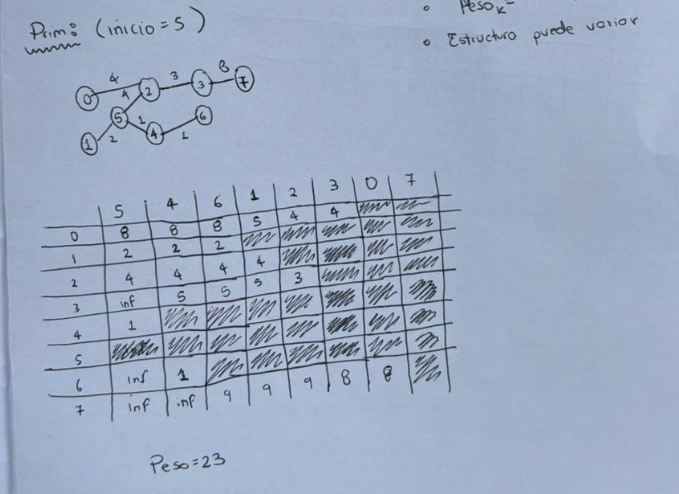 Prim: (inicio=5)
• Peso_K=
• Estructura puede variar
4 3 8
0 4 2 3 7
5 1 6
1 2 4 1
5 4 6 1 2 3 0 7
0 8 8 8 5 4 4
1 2 2 2
2 4 4 4 4
3 inf 5 5 5 3
4 1
5
6 inf 1
7 inf inf 9 9 9 8 8
Peso=23